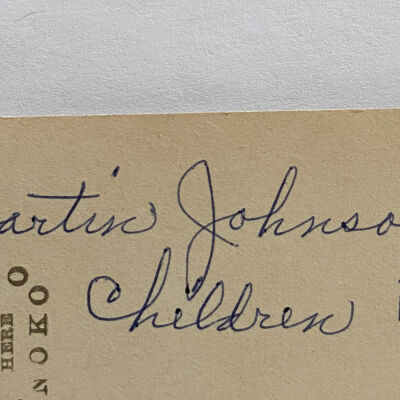 artin Johnso
Children
HERE
NOKO
O